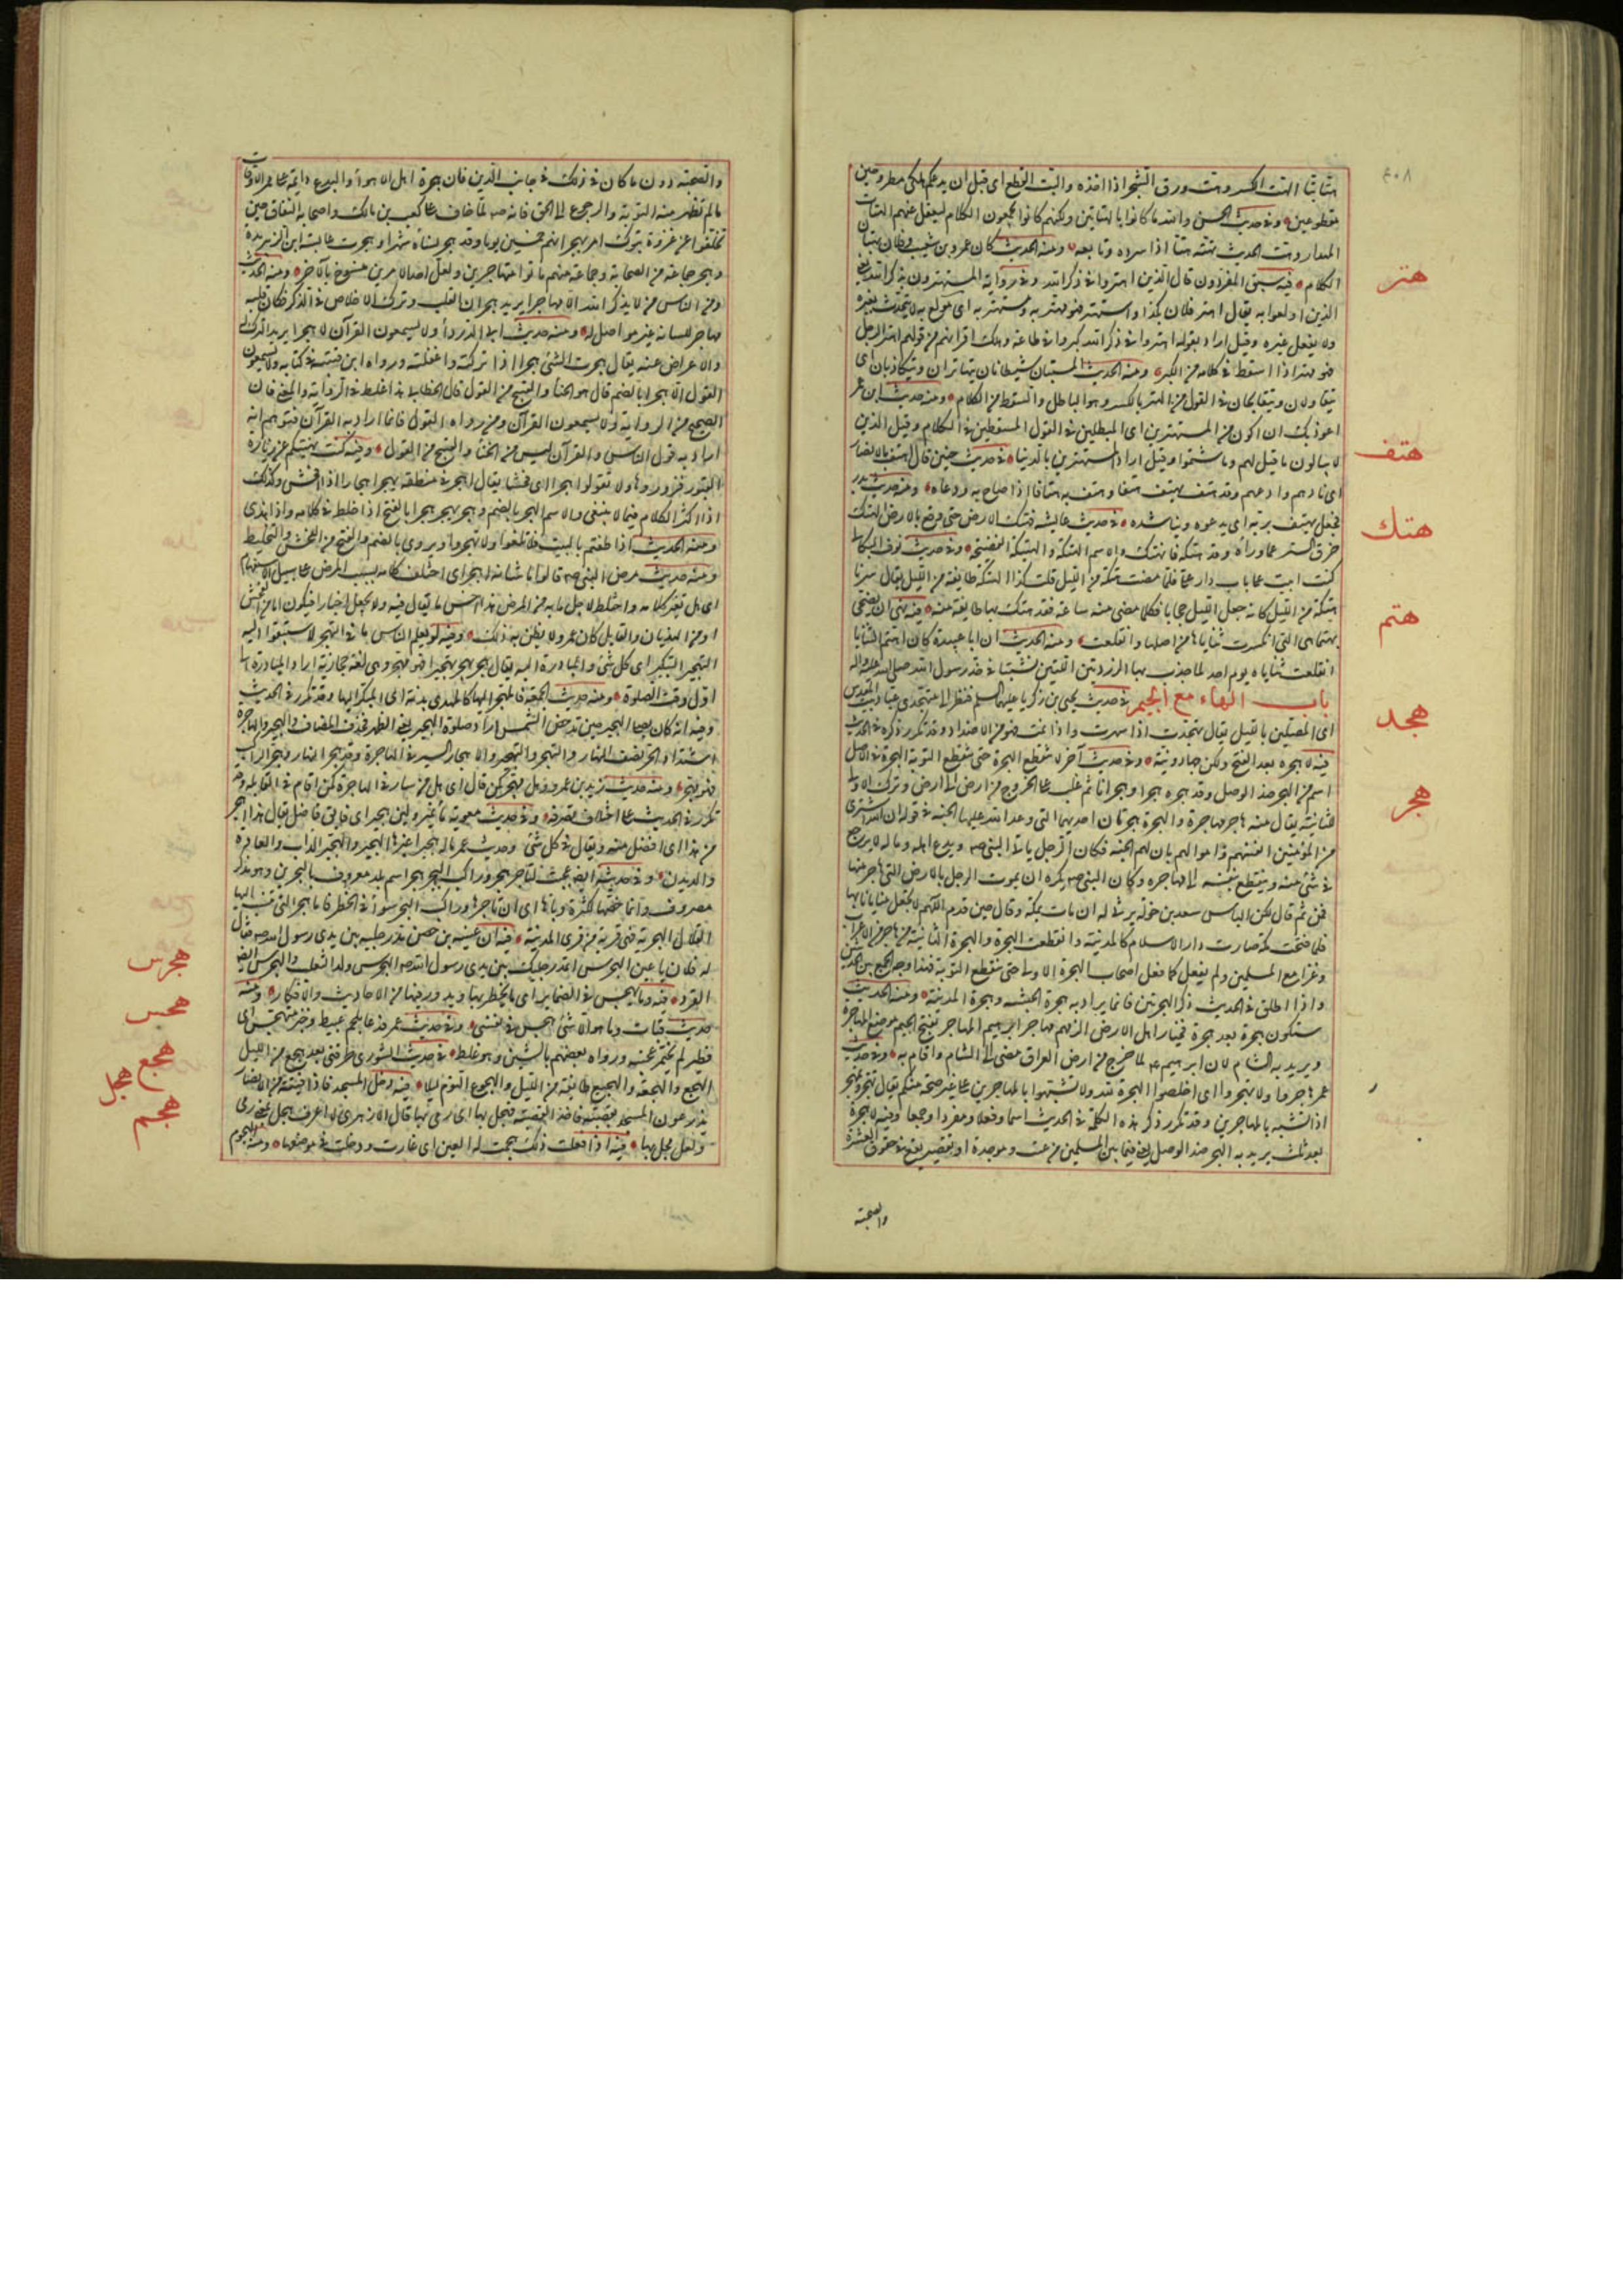 ٤٠٨
هتا بتا الهت الكسر وهت ورق الشجر اذا اخذه والبت القطع اى قبل ان يدعكم هلكى مطروحين
مقطوعين وفى حديث الحسن والله ما كانوا بالهتاتين ولكنهم كانوا يجمعون الكلام ليعقل عنهم الهتات
المهذار وهت الحديث يهته هتا اذا سرده وتابعه ومنه الحديث كان عمرو بن شعيب وفلان يهتان
الكلام فيه سبق المفردون قال الذين اهتروا فى ذكر الله وفى رواية المستهترون بذكر الله يعنى
الذين اولعوا به يقال اهتر فلان بكذا واستهتر فهو مهتر به ومستهتر به اى مولع به لا يتحدث بغيره
ولا يفعل غيره وقيل اراد بقوله اهتروا فى ذكر الله كبروا فى طاعته وهلك اقرانهم من قولهم اهتر الرجل
فهو مهتر اذا اسقط فى كلامه من الكبر ومنه الحديث المستبان شيطانان يتهاتران ويتكاذبان اى
يتقاولان ويتقابحان فى القول من الهتر بالكسر وهو الباطل والسقط من الكلام ومنه حديث ابن عمر
اعوذ بك ان اكون من المستهترين اى المبطلين فى القول المسقطين فى الكلام وقيل الذين
لا يبالون ما قيل لهم وما شتموا وقيل اراد المستهترين بالدنيا فى حديث حنين قال اهتف بالانصار
اى نادهم وادعهم وقد هتف يهتف هتفا وهتف به هتافا اذا صاح به ودعاه ومنه حديث بدر
فجعل يهتف بربه اى يدعوه ويناشده فى حديث عايشة فهتك الارض حتى وقع بالارض الهتك
خرق الستر عما وراءه وقد هتكه فانهتك والاسم الهتكة والهتيكة الفضيحة وفى حديث نوف البكالى
كنت ابيت على باب دار على فلما مضت هتكة من الليل قلت كذا الهتكة طايفة من الليل يقال سرنا
هتكة من الليل كانه جعل الليل حجابا فكلما مضى منه ساعة فقد هتك بها طايفة منه فيه نهى ان يضحى
بهتماء هى التى انكسرت ثناياها من اصلها وانقلعت ومنه الحديث ان ابا عبيدة كان اهتم الثنايا
انقلعت ثناياه يوم احد لما جذب بها الزردتين اللتين نشبتا فى خد رسول الله صلى الله عليه واله
باب الهاء مع الجيم فى حديث يحيى بن زكريا عليهما السلم فنظر الى متهجدى عباد بيت المقدس
اى المصلين بالليل يقال تهجدت اذا سهرت واذا نمت فهو من الاضداد وقد تكرر ذكره فى الحديث
فيه لا هجرة بعد الفتح ولكن جهاد ونية وفى حديث آخر لا تنقطع الهجرة حتى تنقطع التوبة الهجرة فى الاصل
اسم من الهجر ضد الوصل وقد هجره هجرا وهجرانا ثم غلب على الخروج من ارض الى ارض وترك الاولى
للثانية يقال منه هاجر مهاجرة والهجرة هجرتان احديهما التى وعد الله عليها الجنة فى قوله ان الله اشترى
من المؤمنين انفسهم واموالهم بان لهم الجنة فكان الرجل ياتى النبى صم ويدع اهله وماله لا يرجع
فى شىء منه وينقطع بنفسه الى مهاجره وكان النبى صم يكره ان يموت الرجل بالارض التى هاجر منها
فمن ثم قال لكن البائس سعد بن خولة يرثى له ان مات بمكة وقال حين قدم اللهم لا تجعل منايانا بها
فلما فتحت مكة صارت دار الاسلام كالمدينة وانقطعت الهجرة والهجرة الثانية من هاجر من الاعراب
وغزا مع المسلمين ولم يفعل كما فعل اصحاب الهجرة الاولى حتى تنقطع التوبة فهذا وجه الجمع بين الحديثين
واذا اطلق فى الحديث ذكر الهجرتين فانما يراد به هجرة الحبشة وهجرة المدينة ومنه الحديث
ستكون هجرة بعد هجرة فخيار اهل الارض الزمهم مهاجر ابرهيم المهاجر بفتح الجيم موضع المهاجرة
ويريد به الشام لان ابرهيم ع لما خرج من ارض العراق مضى الى الشام واقام به وفى حديث
عمر هاجروا ولا تهجروا اى اخلصوا الهجرة لله ولا تشبهوا بالمهاجرين على غير صحة منكم يقال تهجر وتمهجر
اذا تشبه بالمهاجرين وقد تكرر ذكر هذه الكلمة فى الحديث اسما وفعلا ومفردا وجمعا وفيه لا هجرة
بعد ثلث يريد به الهجر ضد الوصل يعنى فيما بين المسلمين من عتب وموجدة او تقصير يقع فى حقوق العشرة
والصحبة
هتر
هتف
هتك
هتم
هجد
هجر
والصحبة دون ما كان فى ذلك فى جانب الدين فان هجرة اهل الاهواء والبدع دايمة على ممر الاوقات
مالم تظهر منه التوبة والرجوع الى الحق فانه صم لما خاف على كعب بن مالك واصحابه النفاق حين
تخلفوا عن غزوة تبوك امر بهجرانهم خمسين يوما وقد هجر نساءه شهرا وهجرت عايشة ابن الزبير مدة
وهجر جماعة من الصحابة وجماعة منهم ماتوا متهاجرين ولعل احد الامرين منسوخ بالآخر ومنه الحديث
ومن الناس من لا يذكر الله الا مهاجرا يريد هجران القلب وترك الاخلاص فى الذكر فكان قلبه
مهاجر للسانه غير مواصل له ومنه حديث ابى الدرداء ولا يسمعون القرآن الا هجرا يريد الترك له
والاعراض عنه يقال هجرت الشىء هجرا اذا تركته واغفلته ورواه ابن قتيبة فى كتابه ولا يسمعون
القول الا هجرا بالضم قال هو الخنا والقبيح من القول قال الخطابى هذا غلط فى الرواية والمعنى فان
الصحيح من الرواية ولا يسمعون القرآن ومن رواه القول فانما اراد به القرآن فتوهم انه
اراد به قول الناس والقرآن ليس من الخنا والقبيح من القول وفيه كنت نهيتكم عن زيارة
القبور فزوروها ولا تقولوا هجرا اى فحشا يقال اهجر فى منطقه يهجر اهجارا اذا افحش وكذلك
اذا اكثر الكلام فيما لا ينبغى والاسم الهجر بالضم وهجر يهجر هجرا بالفتح اذا خلط فى كلامه واذا هذى
ومنه الحديث اذا طفتم بالبيت فلا تلغوا ولا تهجروا ويروى بالضم والفتح من الفحش والتخليط
ومنه حديث مرض النبى صم قالوا ما شانه اهجر اى اختلف كلامه بسبب المرض على سبيل الاستفهام
اى هل تغير كلامه واختلط لاجل ما به من المرض هذا احسن ما يقال فيه ولا يجعل اخبارا فيكون اما من الفحش
او من الهذيان والقايل كان عمر ولا يظن به ذلك وفيه لو يعلم الناس ما فى التهجير لاستبقوا اليه
التهجير التبكير الى كل شىء والمبادرة اليه يقال هجر يهجر تهجيرا فهو مهجر وهى لغة حجازية اراد المبادرة الى
اول وقت الصلوة ومنه حديث الجمعة فالمهجر اليها كالمهدى بدنة اى المبكر اليها وقد تكرر فى الحديث
وفيه انه كان يصلى الهجير حين تدحض الشمس اراد صلوة الهجير يعنى الظهر فحذف المضاف والهجير والهاجرة
اشتداد الحر نصف النهار والتهجر والتهجير والاهجار السير فى الهاجرة وقد هجر النهار وهجر الراكب
فهو مهجر ومنه حديث زيد بن عمرو وهل مهجر كمن قال اى هل من سار فى الهاجرة كمن اقام فى القايلة وقد
تكرر فى الحديث على اختلاف تصرفه وفى حديث معوية ماء نمير ولبن هجير اى فايق فاضل يقال هذا اهجر
من هذا اى افضل منه ويقال فى كل شىء وفى حديث عمر ماله هجيرا غيرها الهجير والهجيرا الداب والعادة
والديدن وفى حديثه ايضا عجبت لتاجر هجر وراكب البحر هجر اسم بلد معروف بالبحرين وهو مذكر
مصروف وانما خصها لكثرة وبائها اى ان تاجرها وراكب البحر سواء فى الخطر فاما هجر التى تنسب اليها
القلال الهجرية فهى قرية من قرى المدينة فيه ان عيينة بن حصن مد رجليه بين يدى رسول الله صم فقال
له فلان يا عين الهجرس اتمد رجليك بين يدى رسول الله صم الهجرس ولد الثعلب والهجرس ايضا
القرد فيه وما يهجس فى الضماير اى ما يخطر بها ويدور فيها من الاحاديث والافكار ومنه
حديث قباث وما هو الا شىء هجس فى نفسى وفى حديث عمر فدعا بلحم عبيط وخبز متهجس اى
فطير لم يختمر عجينه ورواه بعضهم بالشين وهو غلط فى حديث الشورى طرقنى بعد هجع من الليل
الهجع والهجعة والهجيع طايفة من الليل والهجوع النوم ليلا فيه دخل المسجد فاذا فتية من الانصار
يذرعون المسجد بقصبة فاخذ القصبة فهجل بها اى رمى بها قال الازهرى لا اعرف هجل بمعنى رمى
ولعله نجل بها فيه اذا فعلت ذلك هجمت له العين اى غارت ودخلت فى موضعها ومنه الهجوم
هجرس
هجس
هجع
هجل
هجم